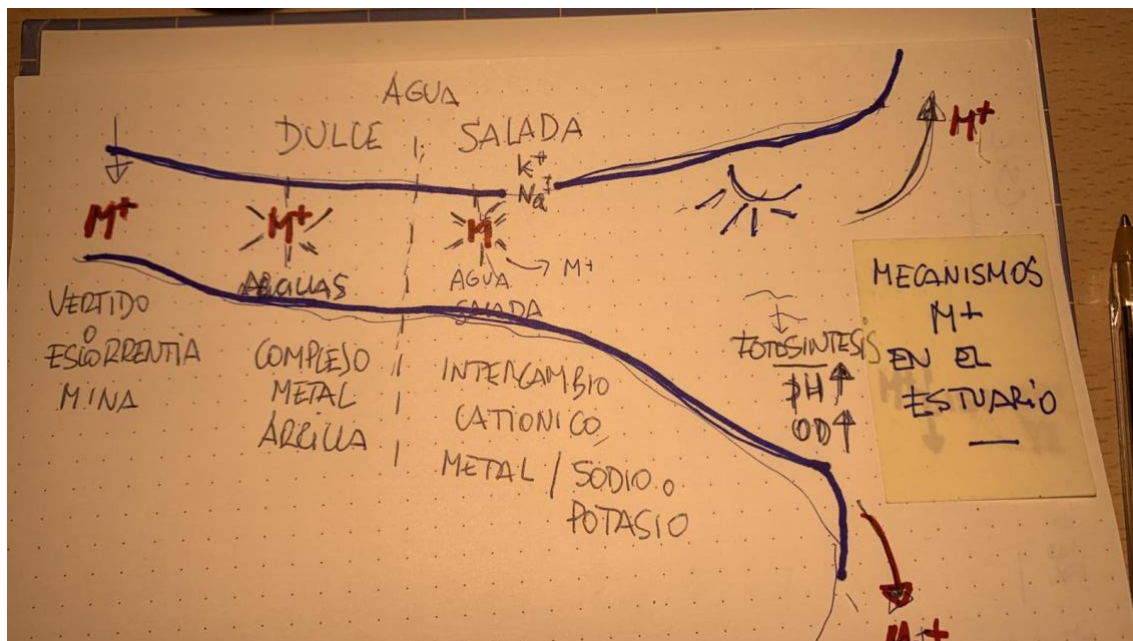 AGUA
DULCE
SALADA
K+
Na+
M+
M+
M
M+
M+
ARCILLAS
AGUA
SALADA
→ M+
VERTIDO
O
ESCORRENTIA
MINA
COMPLEJO
METAL
ARCILLA
INTERCAMBIO
CATIONICO
METAL / SODIO o
POTASIO
FOTOSINTESIS
PH↑
OD↑
MECANISMOS
M+
EN EL
ESTUARIO
M+